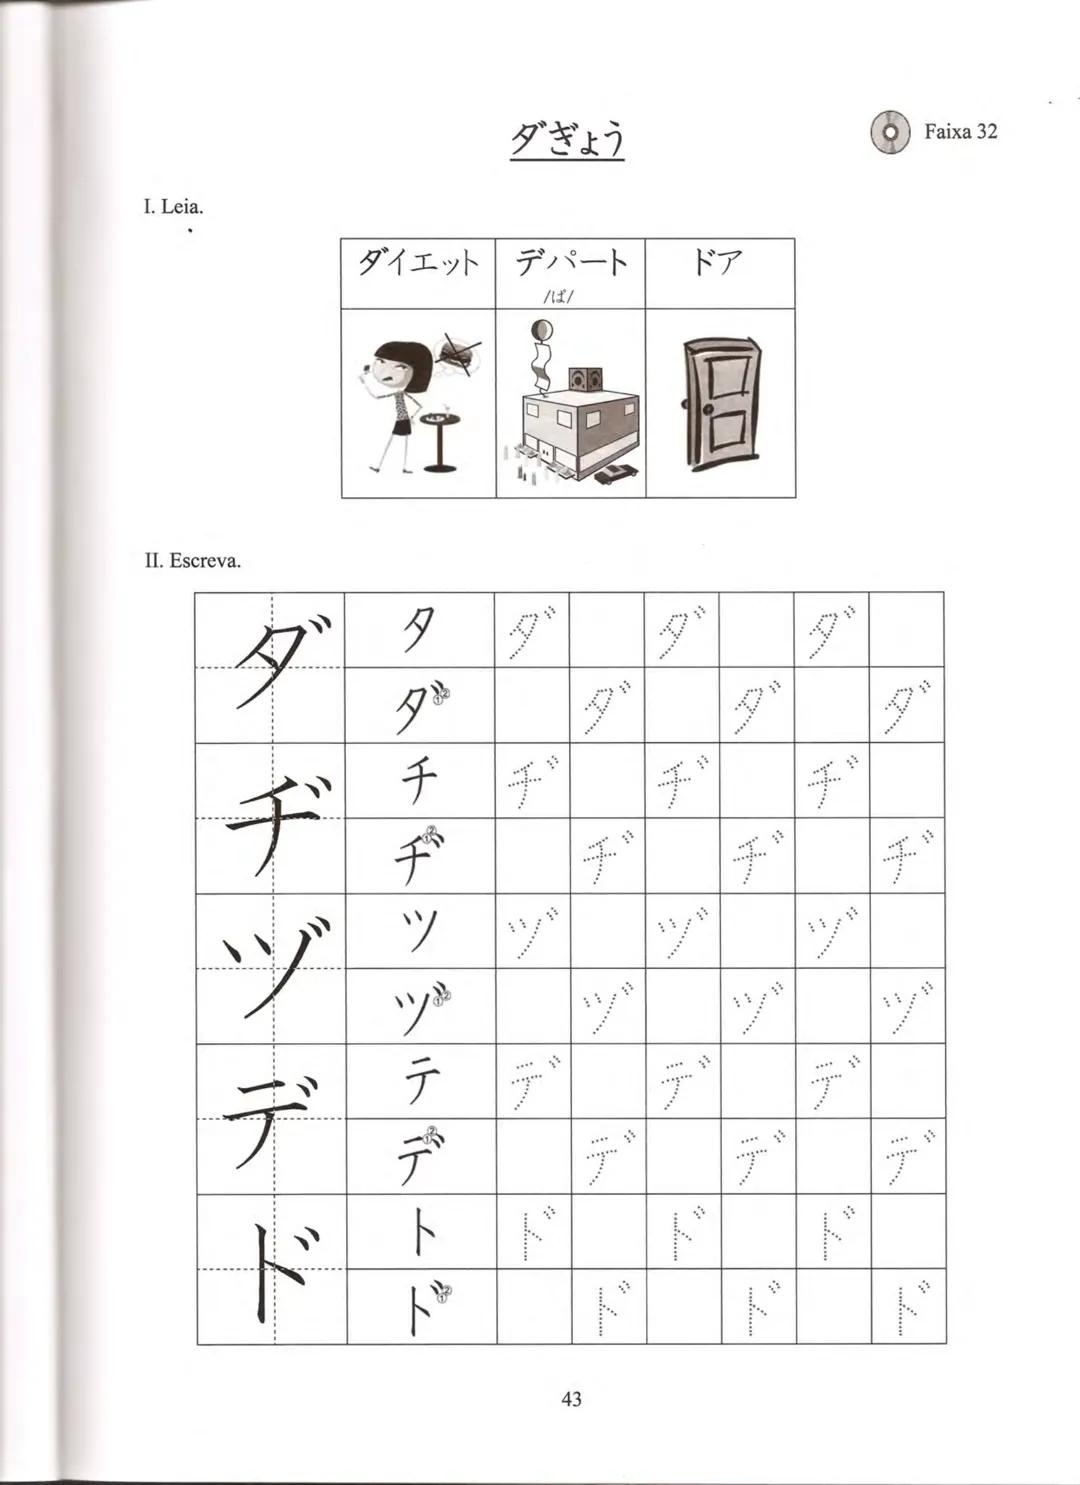 ダぎょう
Faixa 32
I. Leia.
ダイエット デパート ドア
/ぱ/
II. Escreva.
ダ タ ダ ダ ダ
ダ①② ダ ダ ダ
ヂ チ ヂ ヂ ヂ
ヂ①② ヂ ヂ ヂ
ヅ ツ ヅ ヅ ヅ
ヅ①② ヅ ヅ ヅ
デ テ デ デ デ
デ①② デ デ デ
ド ト ド ド ド
ド①② ド ド ド
43